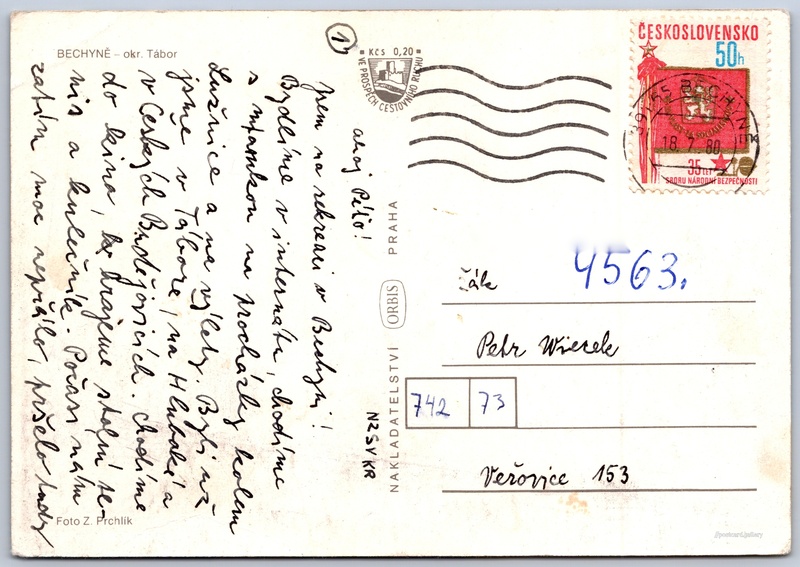 BECHYNĚ – okr. Tábor
1
Kčs 0,20
VE PROSPĚCH CESTOVNÍHO RUCHU
ČESKOSLOVENSKO
50h
391 65 BECHYNĚ
18.7.80
35 let
SBORU NÁRODNÍ BEZPEČNOSTI
ahoj Péťo!
jsem na rekreaci v Bechyni!
Bydlíme v internátu, chodíme
s mamkou na procházky kolem
Lužnice a na výlety. Byli už
jsme v Táboře, na Hluboké a
v Českých Budějovicích. Chodíme
do kina, hrajeme stolní te-
nis a kulečník. Počasí nám
zatím moc nepřálo, pršelo tady
NAKLADATELSTVÍ ORBIS PRAHA
NZSVKR
Žák
4563.
Petr Wiecek
742 73
Veřovice 153
Foto Z. Prchlík